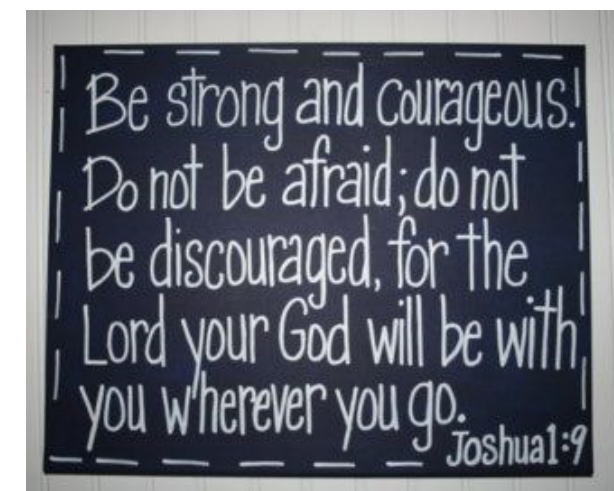 Be strong and courageous.
Do not be afraid; do not
be discouraged, for the
Lord your God will be with
you wherever you go.
Joshua 1:9